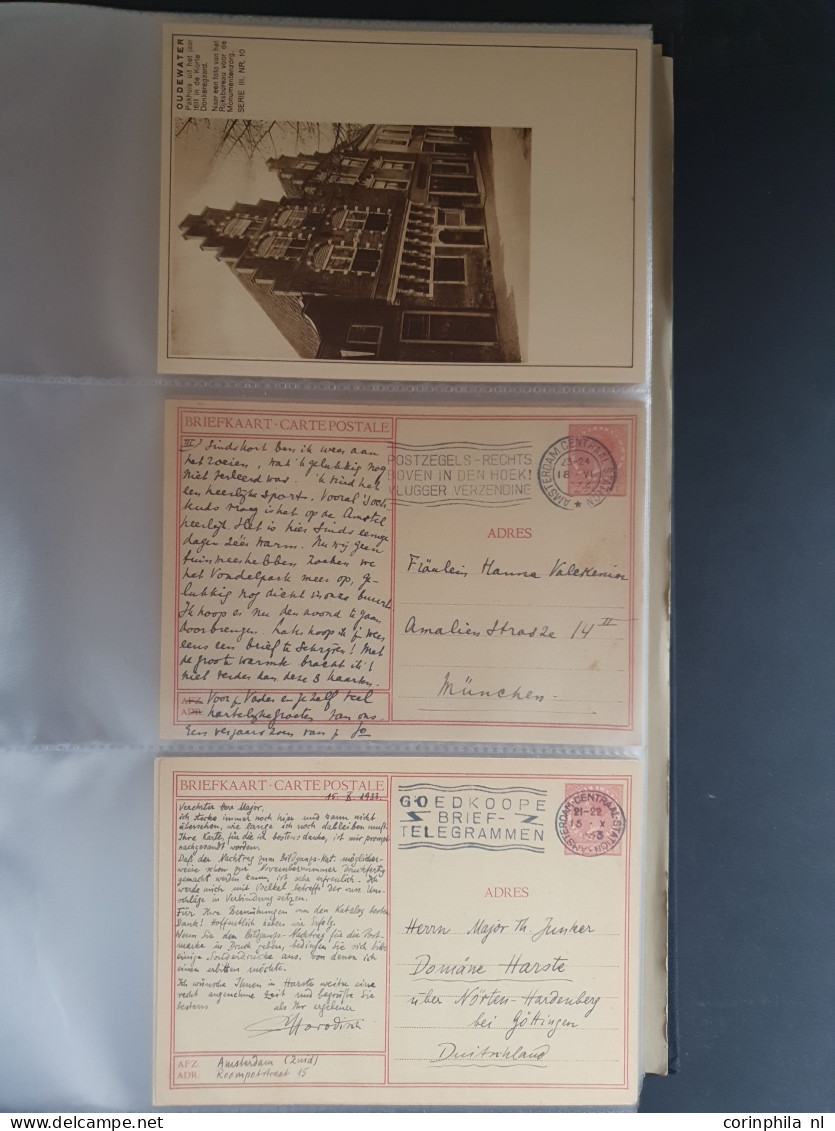 OUDEWATER
Pakhuis uit het jaar
1611 in de Korte
Donkeregaard.
Naar een foto van het
Rijksbureau voor de
Monumentenzorg.
SERIE III. NR. 10
BRIEFKAART - CARTE POSTALE
III) Sindskort ben ik weer aan
het roeien, wat 'k gelukkig nog
niet verleerd was. 'k vind het
een heerlijke sport. Vooral 's och
tends vroeg is het op de Amstel
heerlijk. Het is hier sinds eenige
dagen zéér warm. Nu wij geen
tuin meer hebben zoeken we
het Vondelpark meer op, ge-
lukkig nog dicht in onze buurt.
Ik hoop er nu den avond te gaan
doorbrengen. Later hoop ik je weer
eens een brief te schrijven! Met
de groote warmte bracht ik 't
niet verder dan deze 3 kaarten.
AFZ. Voor je Vader en jezelf veel
ADR. hartelijke groeten van ons.
Een verjaarszoen van je Jo
POSTZEGELS - RECHTS
BOVEN IN DEN HOEK!
VLUGGER VERZENDING
AMSTERDAM CENTRAAL STATION
23-24
18 VI
ADRES
Fräulein Hanna
Amalien Strasze 14 II
München
BRIEFKAART - CARTE POSTALE
15. X 1933.
Verehrter Herr Major,
ich stecke immer noch hier und kann nicht
übersehen, wie lange ich noch dableiben muß.
Ihre Karte, für die ich bestens danke, ist mir prompt
nachgesandt worden.
Daß der Nachtrag zum Bildgangs-Kat. möglicher-
weise schon zur Novembernummer druckfertig
gemacht werden kann, ist sehr erfreulich. Ich
werde mich mit Völkel betreffs der Um-
schläge in Verbindung setzen.
Für Ihre Bemühungen um den Katalog besten
Dank! Hoffentlich haben wir Erfolg.
Wenn Sie den Bildgangs-Nachtrag für die Post-
marke in Druck geben, bedingen Sie sich bitte
einige Sonderdrucke aus, von denen ich
einen erbitten möchte.
Ich wünsche Ihnen in Harste weiter eine
recht angenehme Zeit und begrüße Sie
bestens als Ihr ergebener
AFZ: Amsterdam (Zuid)
ADR: Roompotstraat 15
GOEDKOOPE
BRIEF-
TELEGRAMMEN
AMSTERDAM CENTRAAL STATION
21-22
15 X
ADRES
Herrn Major Th. Junker
Domäne Harste
über Nörten-Hardenberg
bei Göttingen
Duitschland
corinphila nl